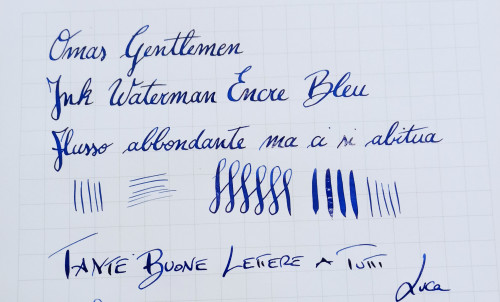 Omas Gentlemen
Ink Waterman Encre Bleu
Flusso abbondante ma ci si abitua
Tante Buone Lettere a Tutti
Luca